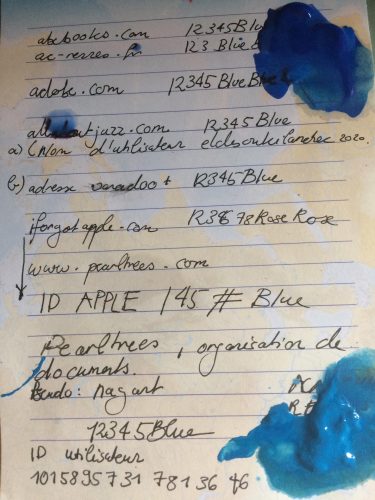 abebooks.com 12345Blu
123 Blue
adobe.com 12345BlueBlue
jazz.com 12345Blue
a) (Nom d'utilisateur 2020.
b) adresse wanadoo + 12345Blue
iforgotapple.com Rose Rose
www.pearltrees.com
ID APPLE 145# Blue
Pearltrees, organisation de
documents.
nagart
12345Blue
ID utilisateur
1015895731 7813646